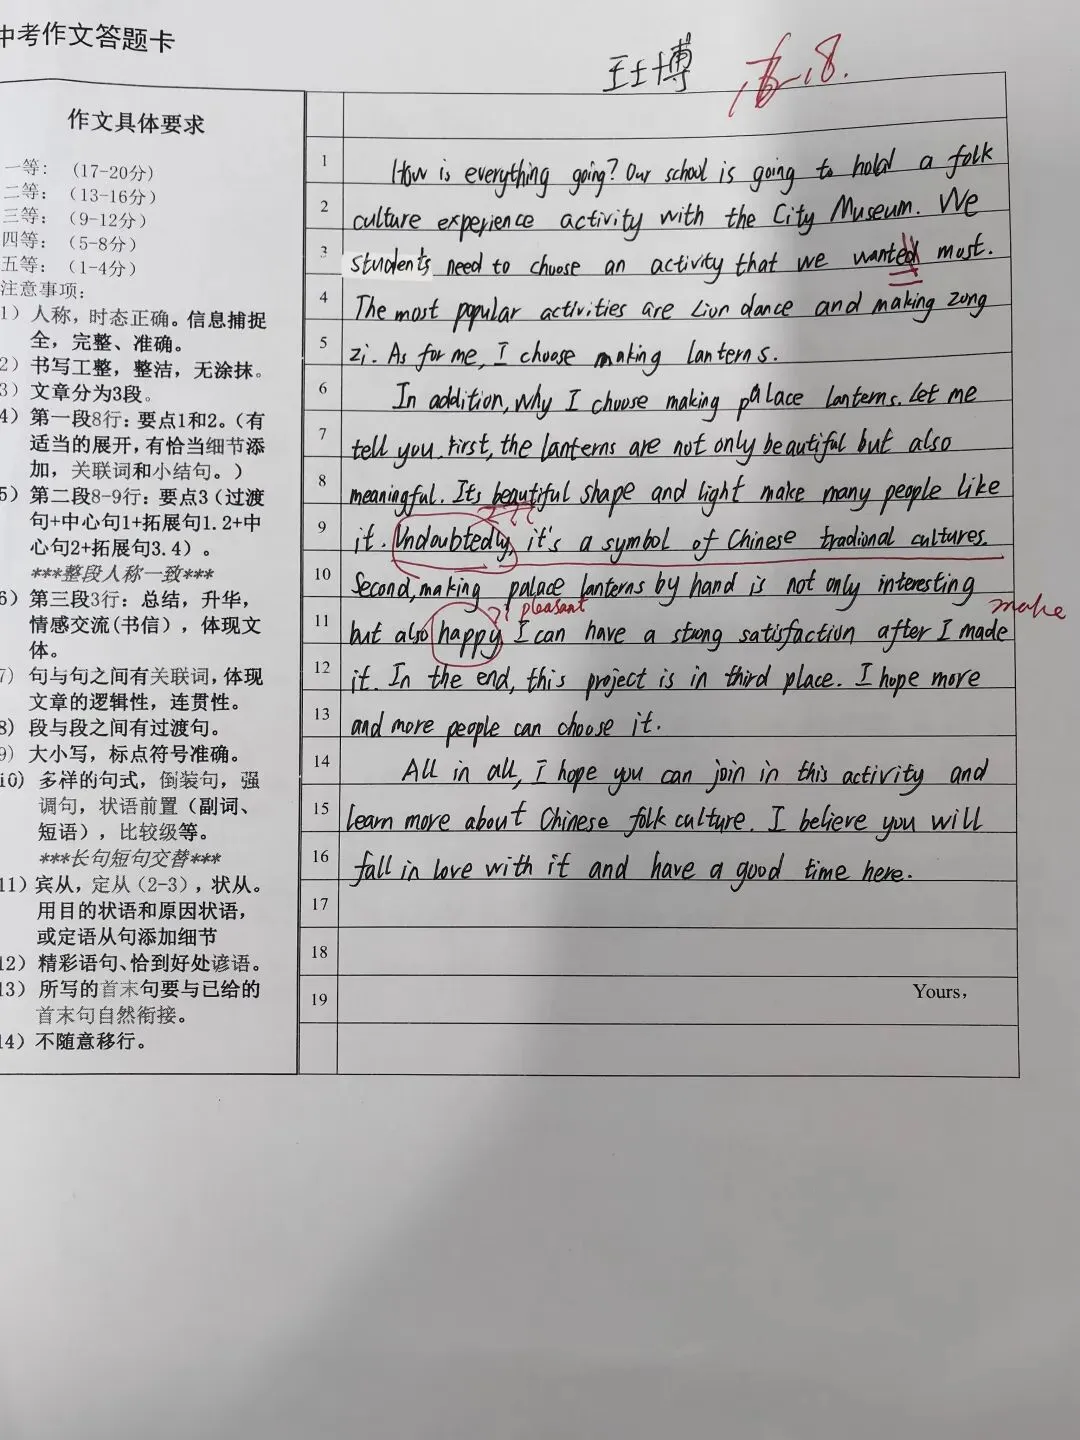 中考作文答题卡
作文具体要求
一等: (17-20分)
二等: (13-16分)
三等: (9-12分)
四等: (5-8分)
五等: (1-4分)
注意事项:
1) 人称,时态正确。信息捕捉
全,完整、准确。
2) 书写工整,整洁,无涂抹。
3) 文章分为3段。
4) 第一段8行:要点1和2。(有
适当的展开,有恰当细节添
加,关联词和小结句。)
5) 第二段8-9行:要点3(过渡
句+中心句1+拓展句1.2+中
心句2+拓展句3.4)。
***整段人称一致***
6) 第三段3行:总结,升华,
情感交流(书信),体现文
体。
7) 句与句之间有关联词,体现
文章的逻辑性,连贯性。
8) 段与段之间有过渡句。
9) 大小写,标点符号准确。
10) 多样的句式,倒装句,强
调句,状语前置(副词、
短语),比较级等。
***长句短句交替***
11) 宾从,定从(2-3),状从。
用目的状语和原因状语,
或定语从句添加细节
12) 精彩语句、恰到好处谚语。
13) 所写的首末句要与已给的
首末句自然衔接。
14) 不随意移行。
博
1 How is everything going? Our school is going to hold a folk
2 culture experience activity with the City Museum. We
3 students need to choose an activity that we wanted most.
4 The most popular activities are Lion dance and making zong
5 zi. As for me, I choose making lanterns.
6 In addition, why I choose making palace lanterns. Let me
7 tell you. First, the lanterns are not only beautiful but also
8 meaningful. Its beautiful shape and light make many people like
9 it. Undoubtedly, it's a symbol of Chinese tradional cultures.
10 Second, making palace lanterns by hand is not only interesting
pleasant
make
11 but also happy I can have a strong satisfaction after I made
12 it. In the end, this project is in third place. I hope more
13 and more people can choose it.
14 All in all, I hope you can join in this activity and
15 learn more about Chinese folk culture. I believe you will
16 fall in love with it and have a good time here.
17
18
19 Yours,